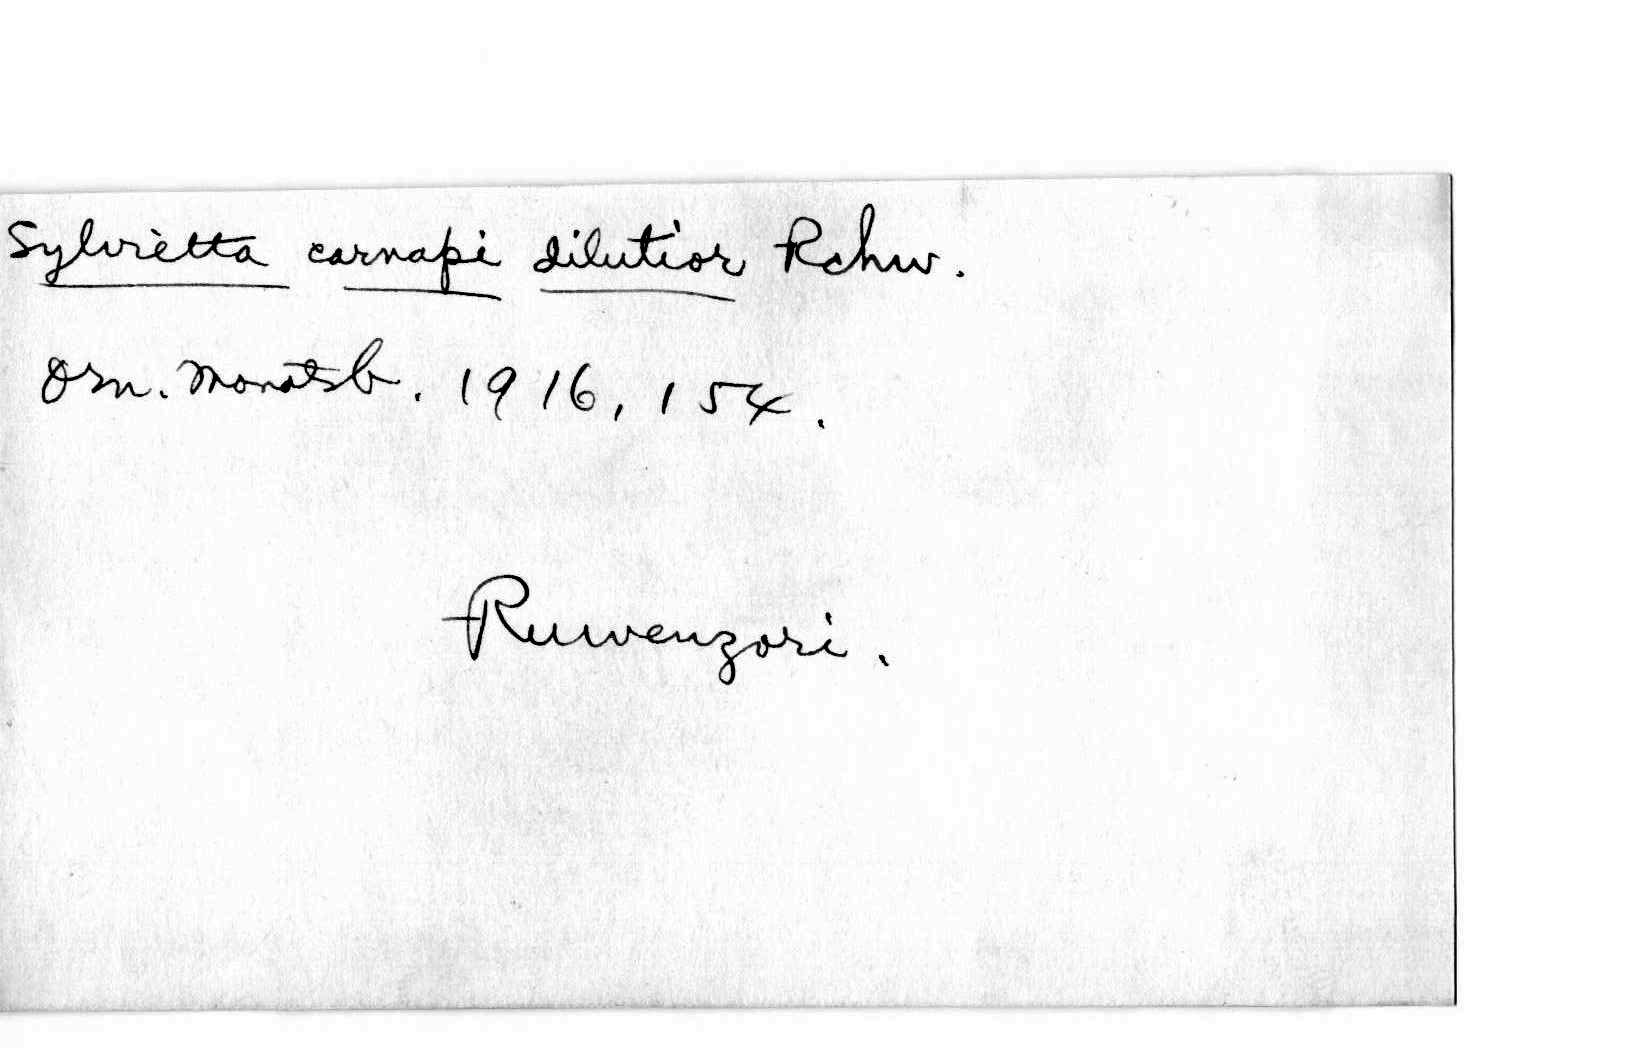 Sylvietta carnapi dilutior Rchw.
Orn. Monatsb. 1916, 154.
Ruwenzori.